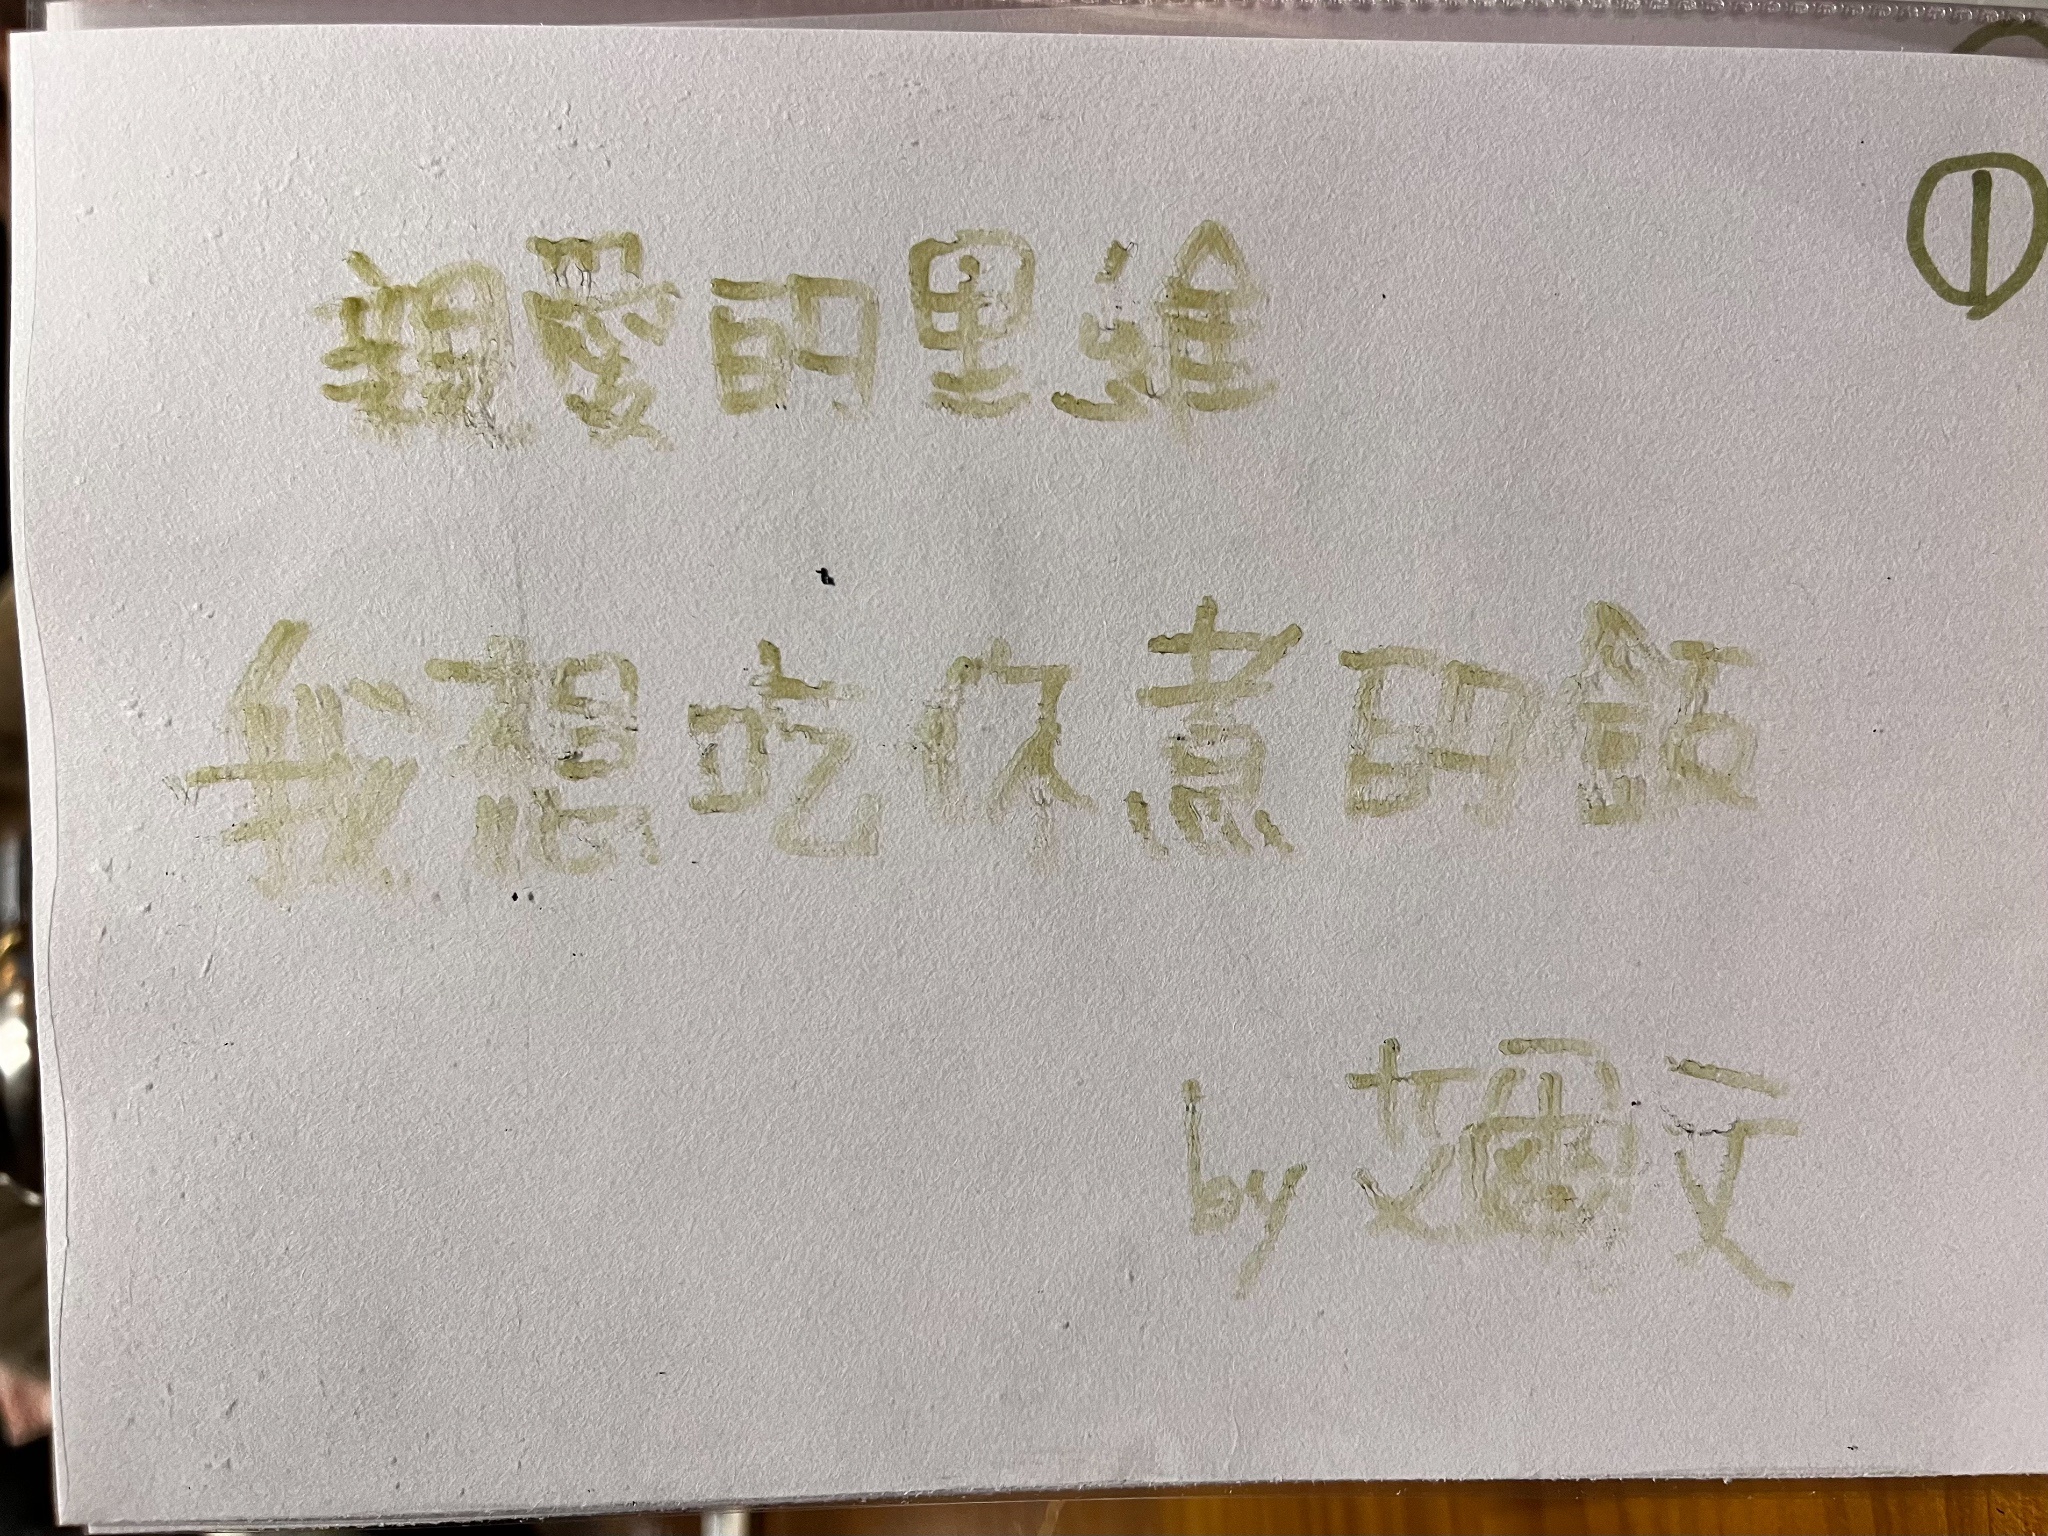 ①
親愛的里維
我想吃你煮的飯
by 艾爾文